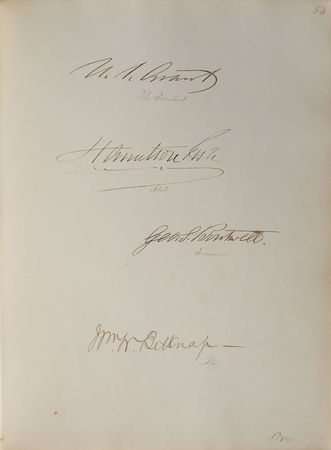 53
U. S. Grant
The President
Hamilton Fish
State
Geo. S. Boutwell.
Wm. W. Belknap —
War